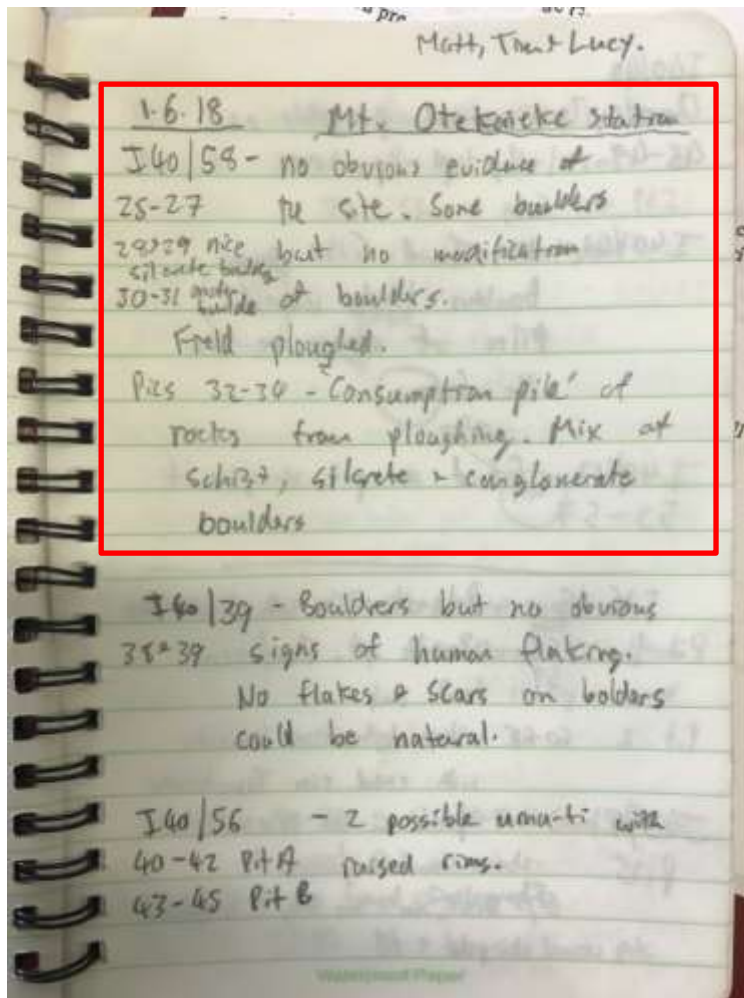 Matt, Trent Lucy.
1.6.18 Mt. Otekeieke Station
I40/58 - no obvious evidence of
25-27 the site. Some boulders
28+29 nice but no modification
silcrete boulder
30-31 boulder of boulders.
Field ploughed.
Pics 32-34 - 'Consumption pile' of
rocks from ploughing. Mix of
schist, silcrete + conglomerate
boulders
I40/39 - Bouldrers but no obvious
38+39 signs of human flaking.
No flakes & scars on bolders
could be natural.
I40/56 - 2 possible umu-ti with
40-42 Pit A raised rims.
43-45 Pit B
Waterproof Paper